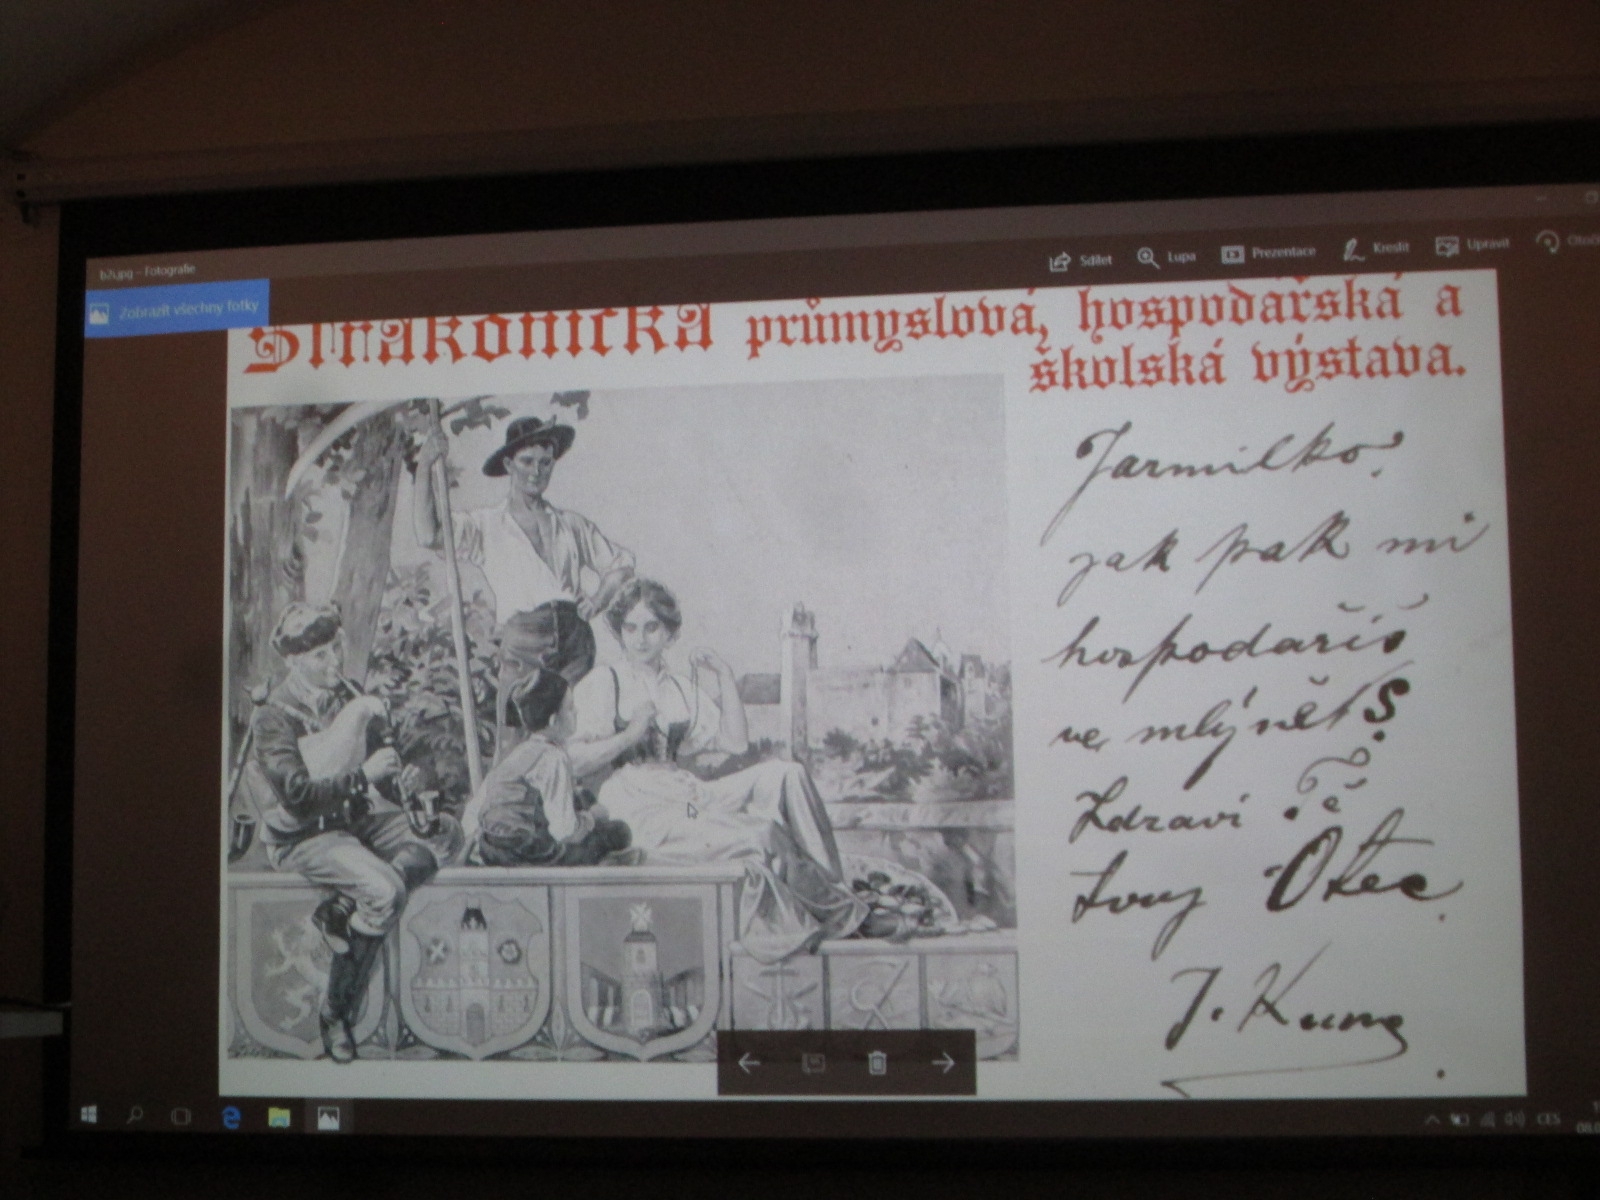 b2i.jpg – Fotografie
Sdílet Lupa Prezentace Kreslit Upravit
Zobrazit všechny fotky
Strakonická průmyslová, hospodářská a
školská výstava.
Jarmilko,
jak pak mi
hospodaříš
ve mlýně?
Zdraví Tě
tvůj Otec
J. Kunz
CES